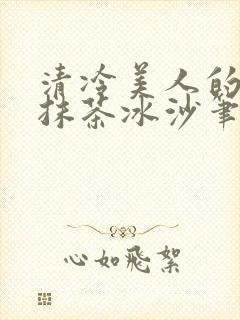 清冷美人的
抹茶冰沙笔
心如飞絮